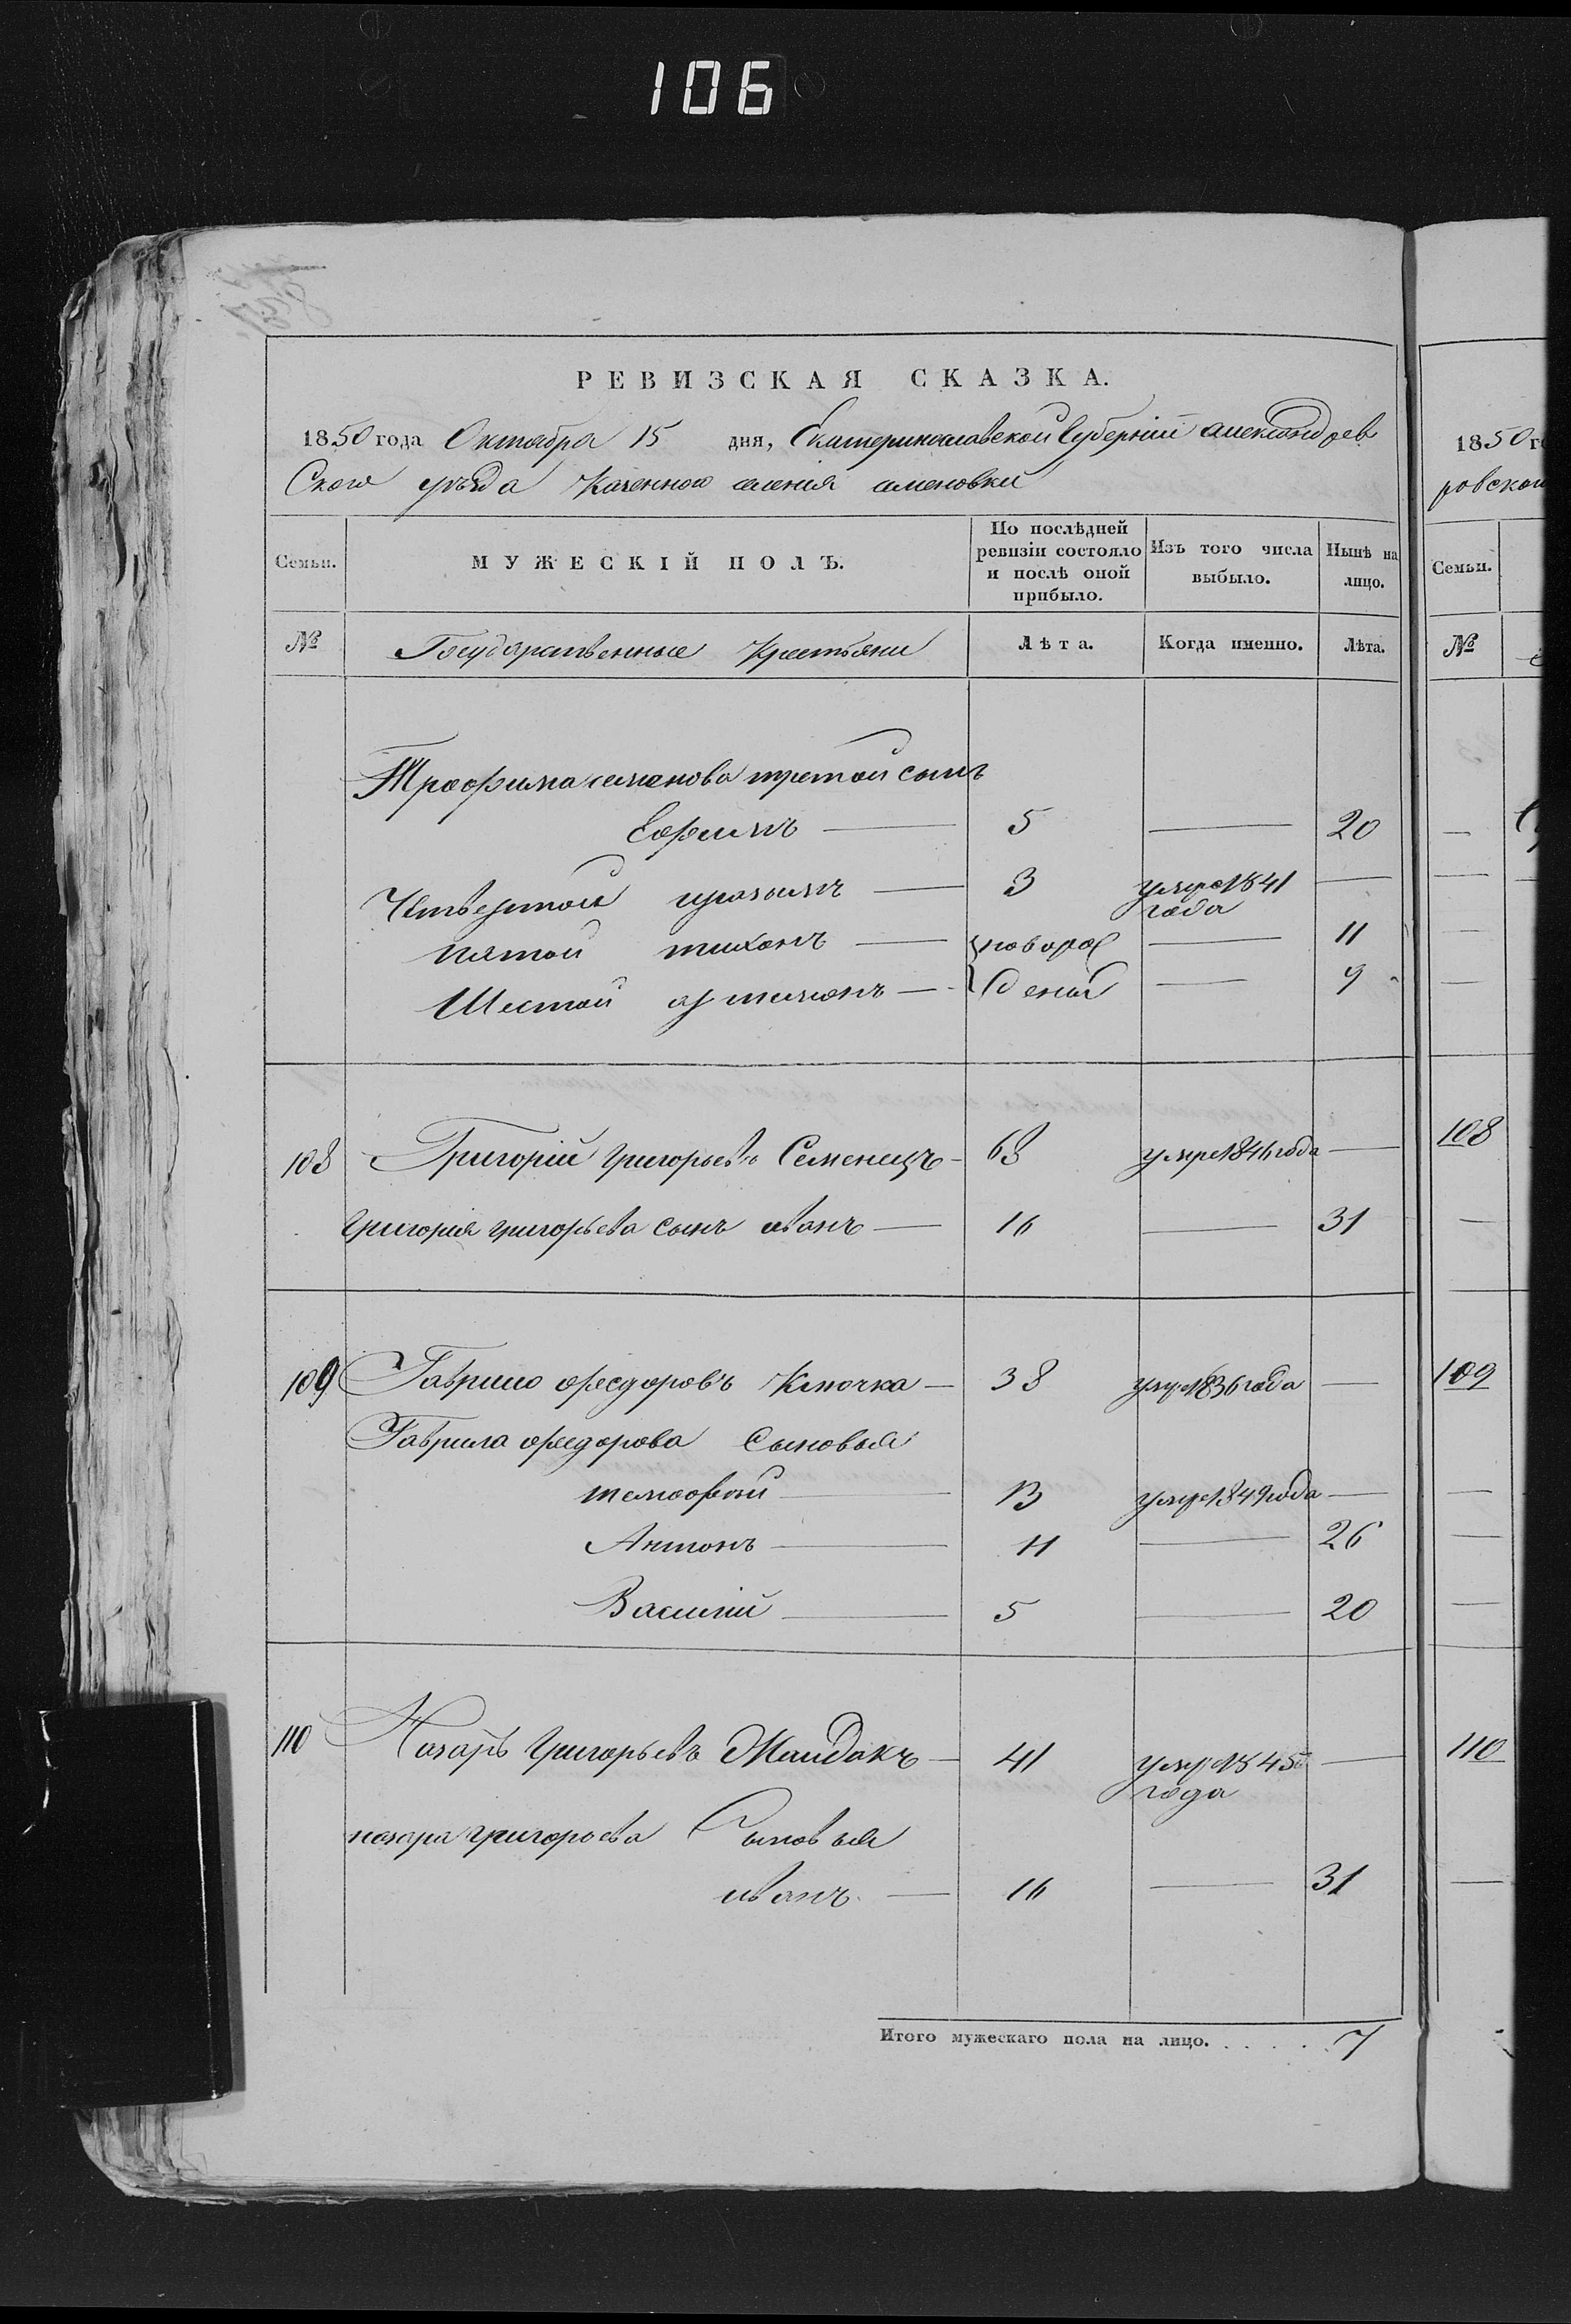 106
РЕВИЗСКАЯ СКАЗКА.
1850 года Октября 15 дня, Екатеринославской Губерніи александров
Ского уѣзда Казенного селенія
МУЖЕСКІЙ ПОЛЪ.
Семьи.
По послѣдней ревизіи состояло и послѣ оной прибыло.
Изъ того числа выбыло.
Нынѣ на лицо.
№ Государственные Крестьяни Лѣта. Когда именно. Лѣта.
Трофима семенова третой сынъ
Ефимъ — 5 — 20
Четвертой — 3 умре 1841 года —
пятой тихонъ — новорож — 11
Шестой — деный — 9
108 Григорій григорьевъ Семенецъ — 63 умре 1846 года —
григория григорьева сынъ иванъ — 16 — 31
109 Гаврило федоровъ Клочка — 38 умре 1836 года —
Гаврила федорова Сыновья
тимофей — 13 умре 1849 года —
Антонъ — 11 — 26
Василий — 5 — 20
110 Назаръ Григорьевъ Жайдакъ — 41 умре 1845 года —
назара григорьева Сыновья
иванъ — 16 — 31
Итого мужескаго пола на лицо. . . . . 7
1850 г
ровской
Семьи.
№
108
109
110